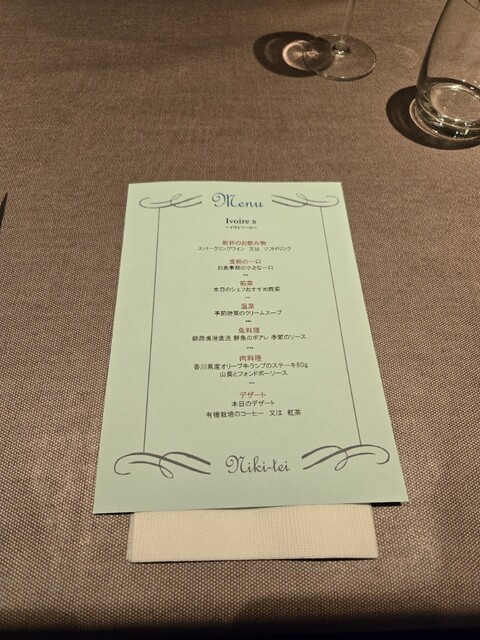 Menu
Ivoire s
～イヴォワール～
乾杯のお飲み物
スパークリングワイン 又は ソフトドリンク
食前の一口
お食事前の小さな一口
前菜
本日のシェフおすすめ前菜
温菜
季節野菜のクリームスープ
魚料理
釧路漁港直送 鮮魚のポアレ 季節のソース
肉料理
香川県産オリーブ牛ランプのステーキ80g
山葵とフォンドボーソース
デザート
本日のデザート
有機栽培のコーヒー 又は 紅茶
Niki-tei